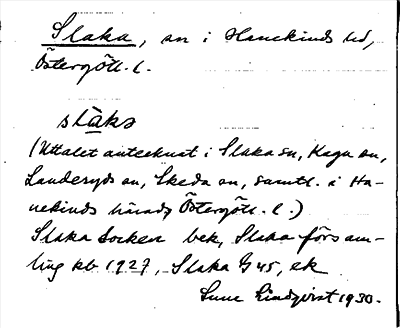 Slaka, sn i Hanekinds hd,
Östergötl. l.
slàka
(Uttalet antecknat i Slaka sn, Kaga sn,
Landeryds sn, Skeda sn, samtl. i Ha-
nekinds härads Östergötl. l.)
Slaka socken bek, Slaka förs am-
ling kb 1927, Slaka G 45, ek
Sune Lindqvist 1930.